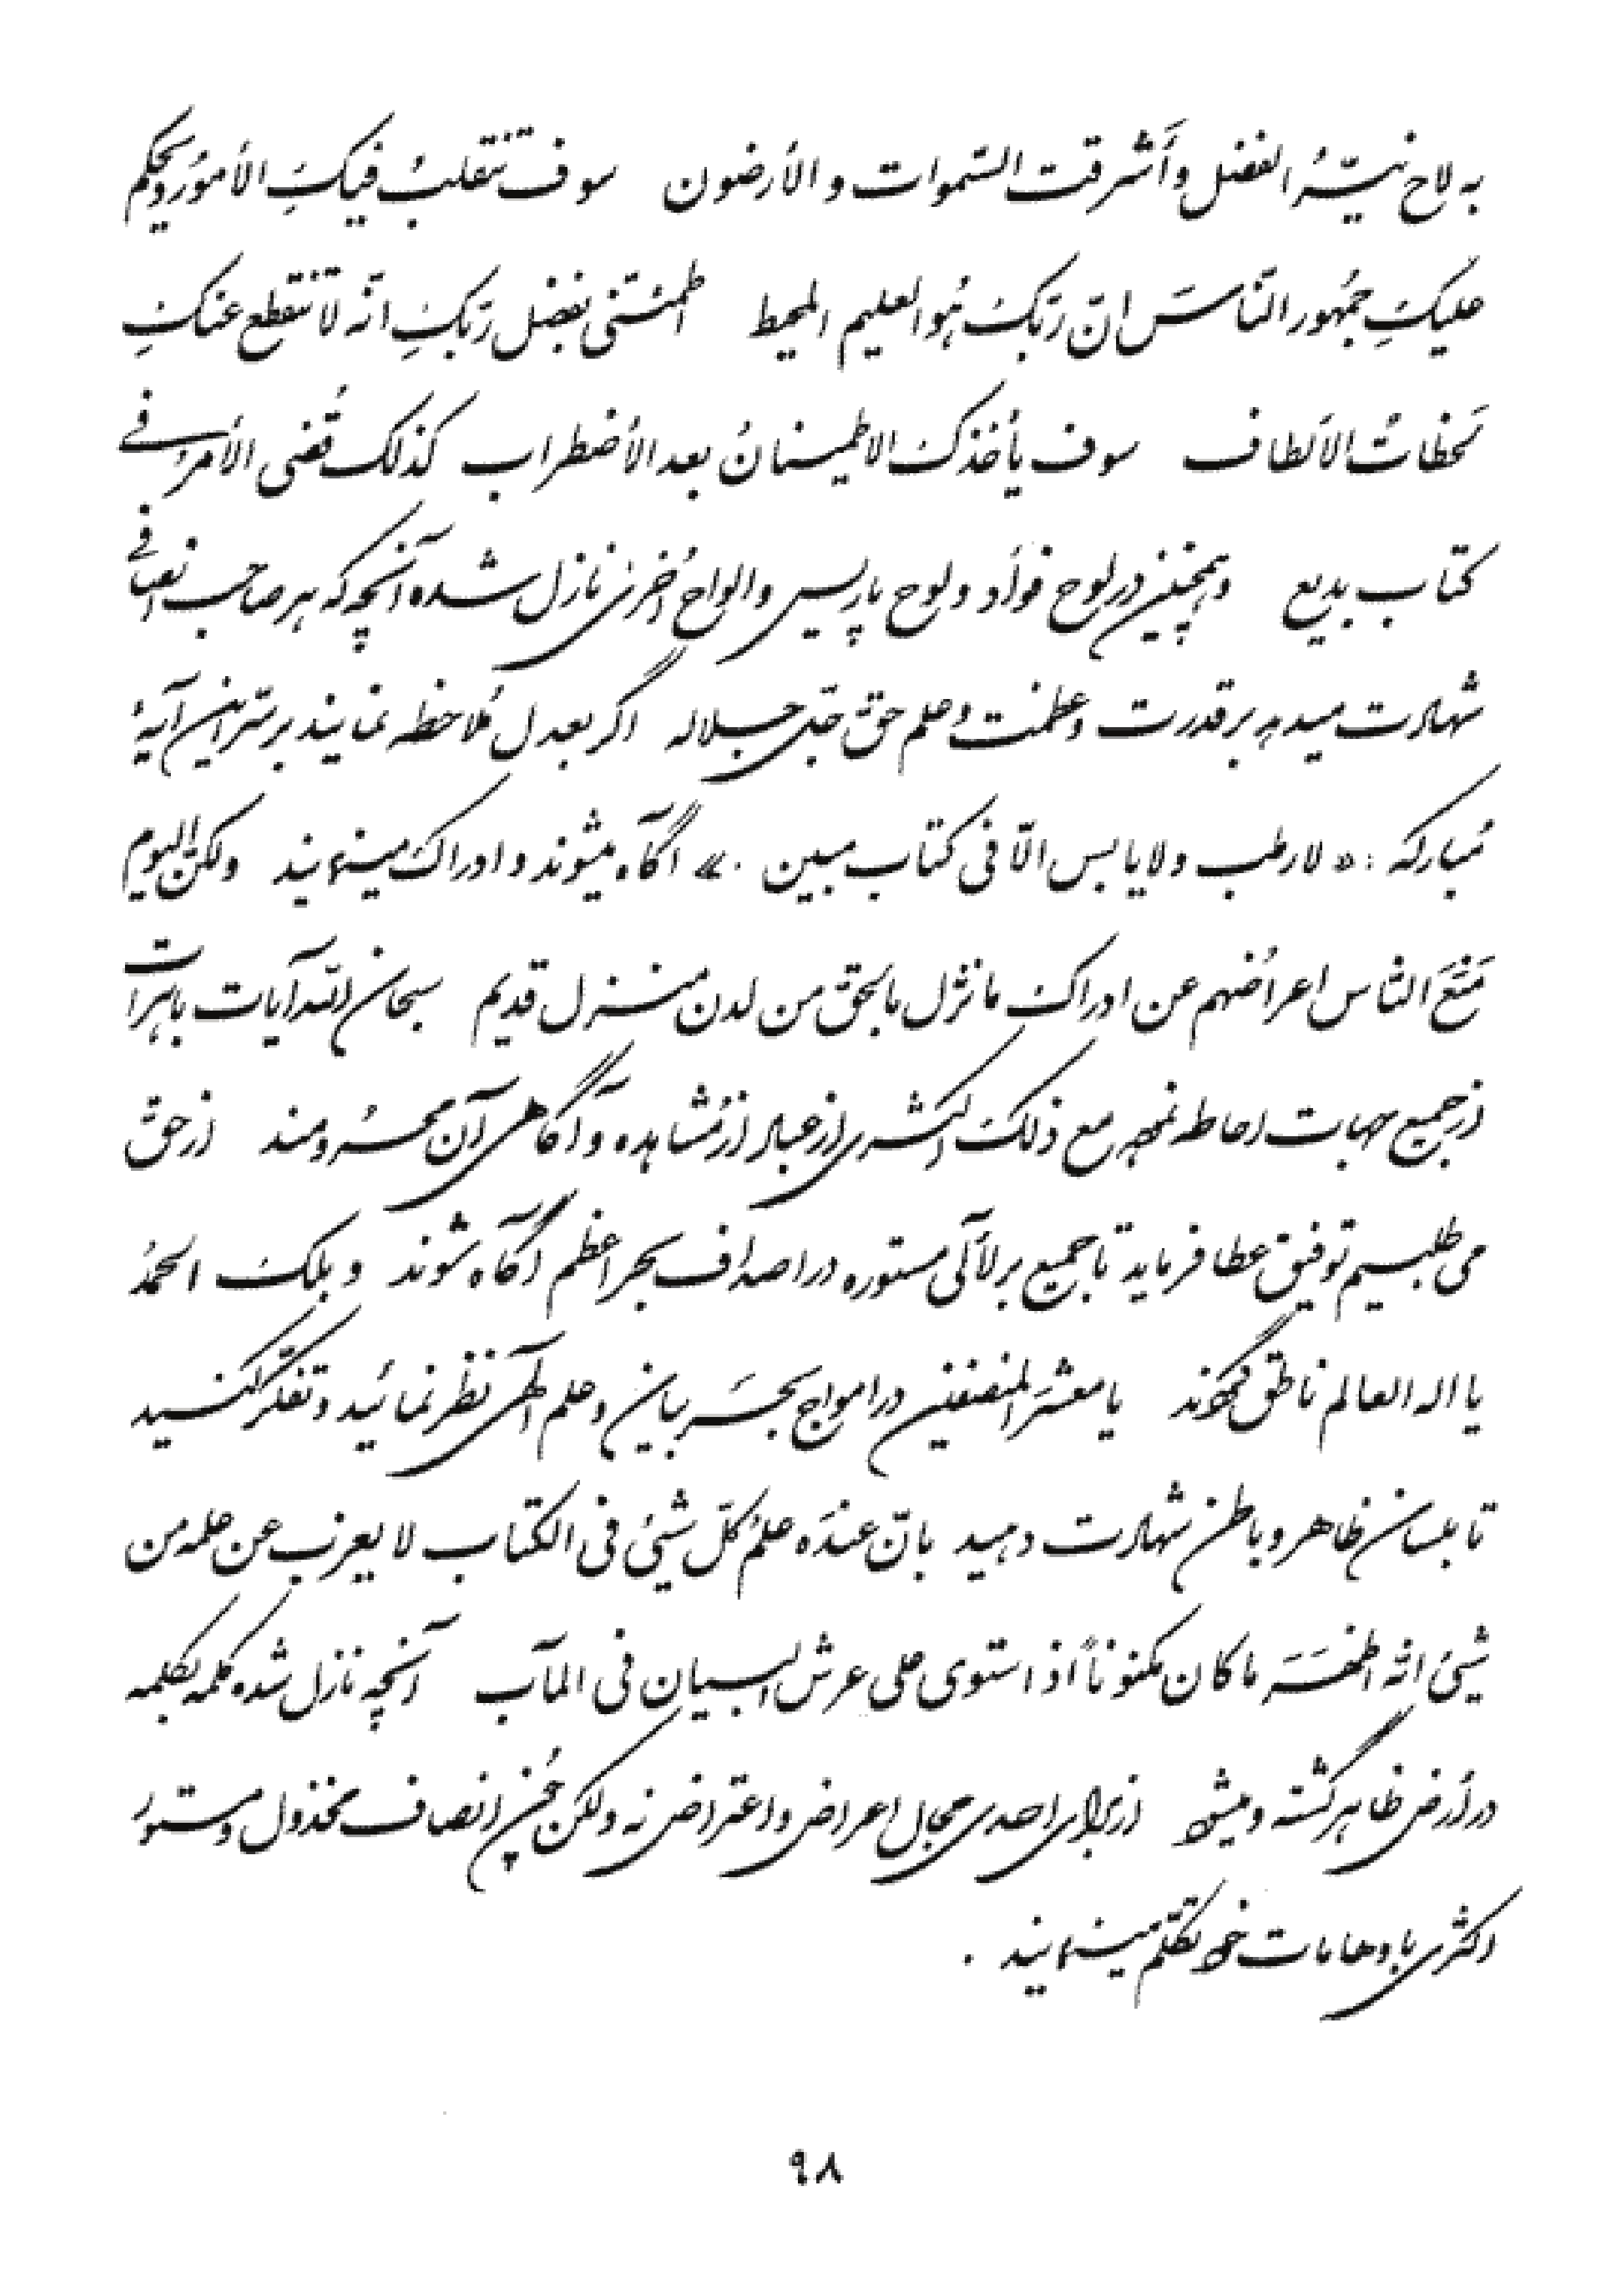 به لاح نیّرُ الفضل و أشرقت السّموات و الأرضون سوف تنقلبُ فیکِ الأمورُ و یحکم
علیکِ جمُهور النّاسَ انّ ربّکَ هُو العلیم المحیط اطمئنّی بفضل ربّکِ انّه لا تنقطع عنکِ
لَحظاتُ الألطاف سوف یأخذکِ الاطمینانُ بعد الأضطراب کذلک قُضی الأمرُ فی
کتاب بدیع و همچنین در لوح فؤاد و لوح پاریس و الواح اُخریٰ نازل شده آنچه که هر صاحب انصافی
شهادت میدهد بر قدرت و عظمت و علم حقّ جلّ جلاله اگر بعدل مُلاحظه نمایند بر سّر این آیۀ
مُبارکه : « لا رطب و لا یابس الّا فی کتاب مبین . » آگاه میشوند و ادراک مینمایند ولکنّ الیوم
مَنَعَ النّاس اعراضُهم عن ادراک ما نزّل بالحقّ من لدن منزل قدیم سبحان اللّه آیات باهرات
از جمیع جهات احاطه نموده مع ذلک اکثری از عباد از مُشاهده و آگاهی آن محرومند از حقّ
می طلبیم توفیق عطا فرماید تا جمیع بر لآلی مستوره در اصداف بحر اعظم آگاه شوند و بلک الحمدُ
یا اله العالم ناطق گردند یا معشَر المنصفین در امواج بحر بیان و علم الهی نظر نمائید و تفکّر کنید
تا بلسان ظاهر و باطن شهادت دهید بانّ عندَه علمُ کلّ شیئ فی الکتاب لا یعزب عن علمه من
شیئ انّه اظهَر ما کان مکنوناً اذ استوی علی عرش البیان فی المآب آنچه نازل شده کلمه بکلمه
در أرض ظاهر گشته و میشود از برای احدی مجال اعراض و اعتراض نه ولکن چون انصاف مخذول و مستور
اکثری باوهامات خود تکلّم مینمایند .
۹۸